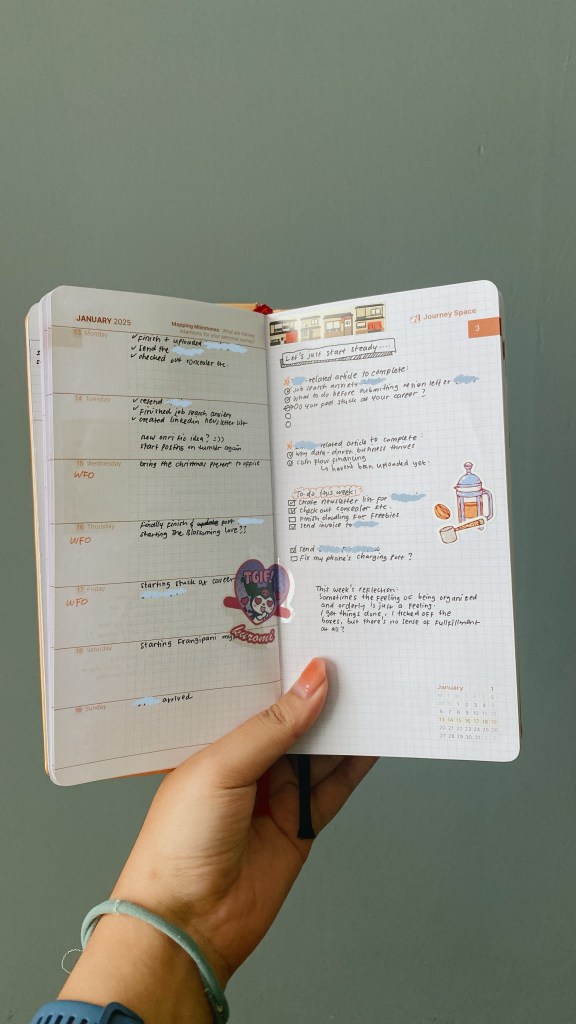 JANUARY 2025
Mapping Milestones What are the key
intentions for your personal journey?
13 Monday
✓ Finish + uploaded
✓ Send the
✓ checked out concealer etc.
14 Tuesday
✓ resend
✓ Finished job search anxiety
✓ created linkedin newsletter list
new onri fic idea? =))
start posting on tumblr again
15 Wednesday
WFO
bring the christmas present to office
16 Thursday
WFO
finally finish & update post
starting The Blossoming Love??
17 Friday
WFO
starting stuck at career
TGIF!
Kuromi
18 Saturday
starting Frangipani
19 Sunday
arrived
Journey Space
3
Let's just start steady....
-related article to complete:
Job search anxiety
What to do before submitting resign letter
Do you feel stuck at your career?
-related article to complete:
Why data-driven business thrives
Cash flow financing
↳ haven't been uploaded yet.
To do this week:
Create newsletter list for
Check out concealer etc.
Finish doodling for Freebies
Send invoice to
Send
Fix my phone's charging port?
This week's reflection:
Sometimes the feeling of being organized
and orderly is just a feeling.
I get things done, I ticked off the
boxes, but there's no sense of fullfillment
at all?
January 1
6 7 8 9 10 11 12
13 14 15 16 17 18 19
20 21 22 23 24 25 26
27 28 29 30 31